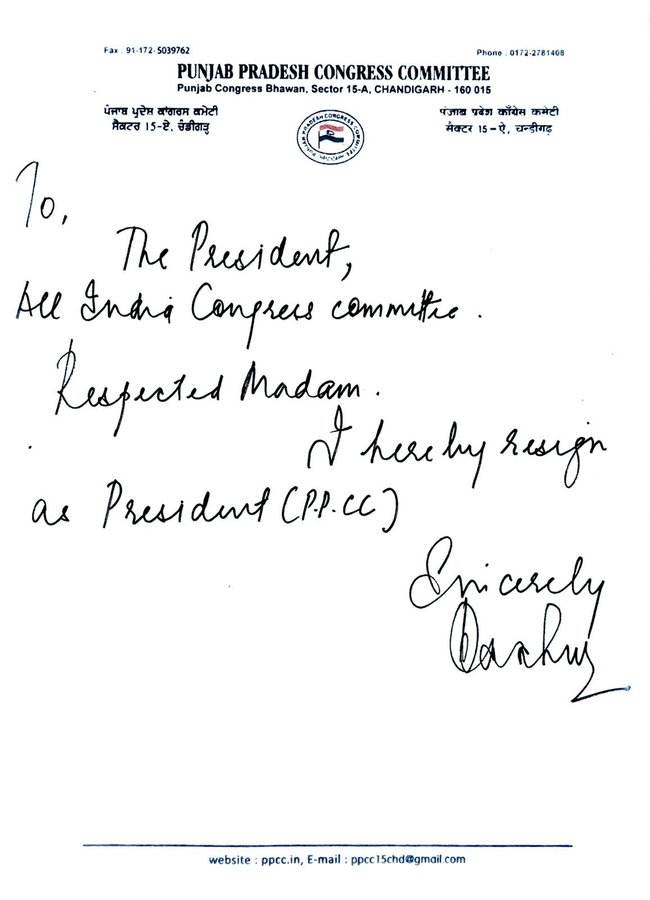 Fax : 91-172-5039762 Phone : 0172-2781408
PUNJAB PRADESH CONGRESS COMMITTEE
Punjab Congress Bhawan, Sector 15-A, CHANDIGARH - 160 015
ਪੰਜਾਬ ਪ੍ਰਦੇਸ਼ ਕਾਂਗਰਸ ਕਮੇਟੀ पंजाब प्रदेश काँग्रेस कमेटी
ਸੈਕਟਰ 15-ਏ, ਚੰਡੀਗੜ੍ਹ सैक्टर 15 - ऐ, चन्डीगढ़
PUNJAB PRADESH CONGRESS COMMITTEE
To,
The President,
All India Congress committee.
Respected Madam.
I hereby resign
as President (P.P.CC)
Sincerely
website : ppcc.in, E-mail : ppcc15chd@gmail.com